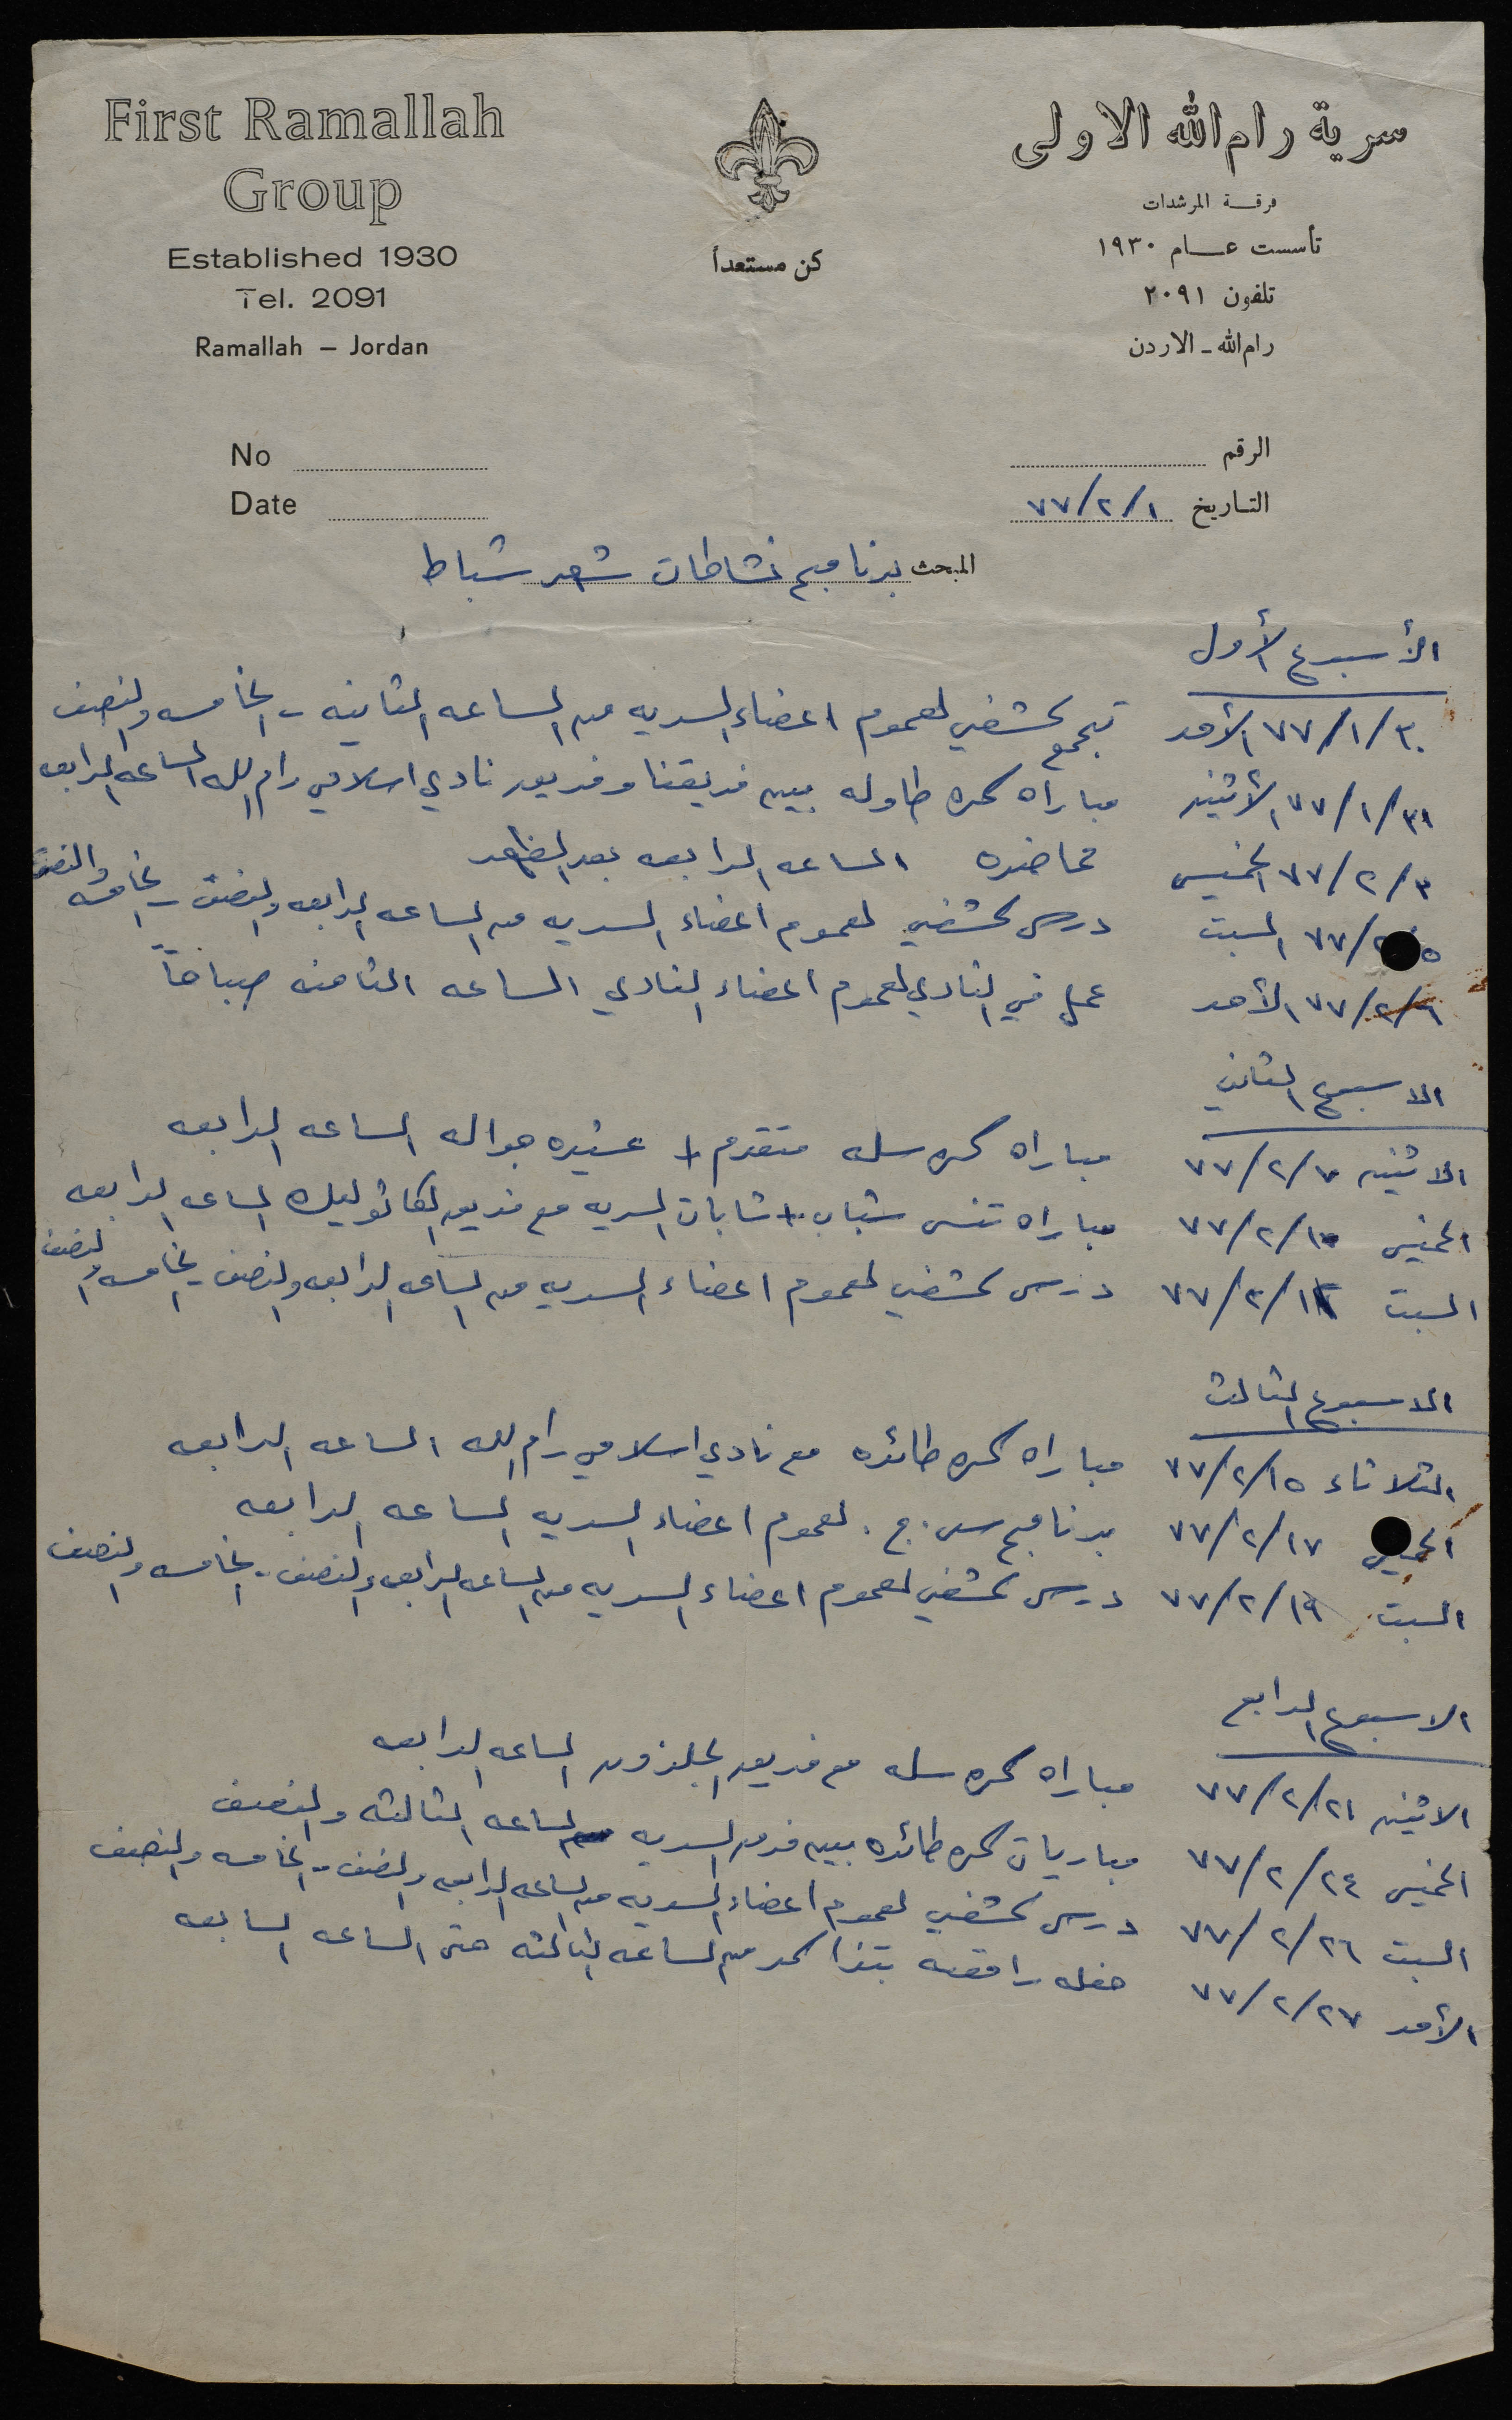 First Ramallah
Group
Established 1930
Tel. 2091
Ramallah – Jordan
كن مستعداً
سرية رام الله الاولى
فرقة المرشدات
تأسست عام ١٩٣٠
تلفون ٢٠٩١
رام الله - الاردن
No
Date
الرقم
التاريخ ٧٧/٢/١
المبحث برنامج نشاطات شهر شباط
الأسبوع الأول
٧٧/١/٣٠ الأحد تجمع كشفي لعموم اعضاء السريه من الساعه الثانيه - الخامسه والنصف
٧٧/١/٣١ الأثنين مباراه كره طاوله بين فريقنا وفريق نادي اسلامي رام الله الساعه الرابعه
٧٧/٢/٣ الخميس محاضره الساعه الرابعه بعد الظهر
٧٧/٢/٥ السبت درس كشفي لعموم اعضاء السريه من الساعه الرابعه والنصف - الخامسه والنصف
٧٧/٢/٦ الأحد عمل في النادي لعموم اعضاء النادي الساعه الثامنه صباحاً
الاسبوع الثاني
الاثنين ٧٧/٢/٧ مباراه كره سله متقدم + عشيره جواله الساعه الرابعه
الخميس ٧٧/٢/١٠ مباراه تنس شباب + شابات السريه مع فريق الكاثوليك الساعه الرابعه
السبت ٧٧/٢/١٢ درس كشفي لعموم اعضاء السريه من الساعه الرابعه والنصف - الخامسه والنصف
الاسبوع الثالث
الثلاثاء ٧٧/٢/١٥ مباراه كره طائره مع نادي اسلامي رام الله الساعه الرابعه
الخميس ٧٧/٢/١٧ برنامج س . ج . لعموم اعضاء السريه الساعه الرابعه
السبت ٧٧/٢/١٩ درس كشفي لعموم اعضاء السريه من الساعه الرابعه والنصف - الخامسه والنصف
الاسبوع الرابع
الاثنين ٧٧/٢/٢١ مباراه كره سله مع فريق الجلزون الساعه الرابعه
الخميس ٧٧/٢/٢٤ مباريات كره طائره بين فرق السريه الساعه الثالثه والنصف
السبت ٧٧/٢/٢٦ درس كشفي لعموم اعضاء السريه من الساعه الرابعه والنصف - الخامسه والنصف
الأحد ٧٧/٢/٢٧ حفله راقصه بتذاكر من الساعه الثالثه حتى الساعه السابعه